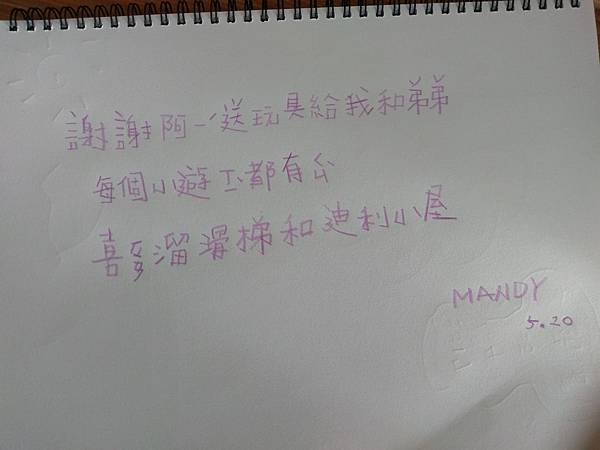 謝謝阿一送玩具給我和弟弟
每個小遊玉都有公
喜歡溜滑梯和迪利小屋
MANDY
5.20